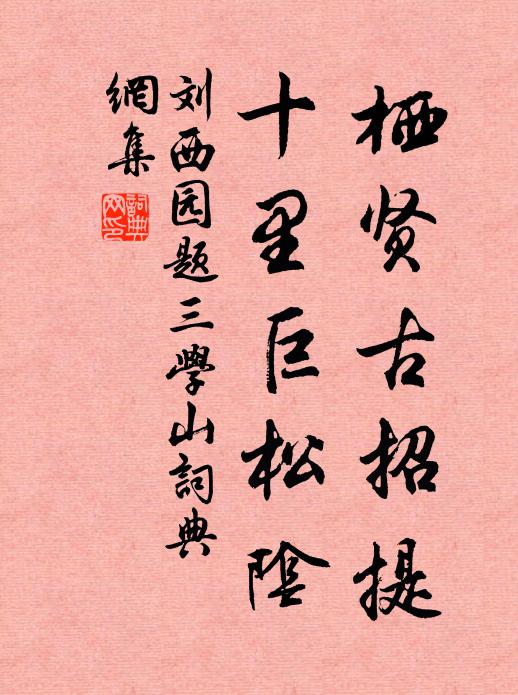 栖贤古招提
十里巨松陰
刘西园题三學山詞典
網集
詞典網印